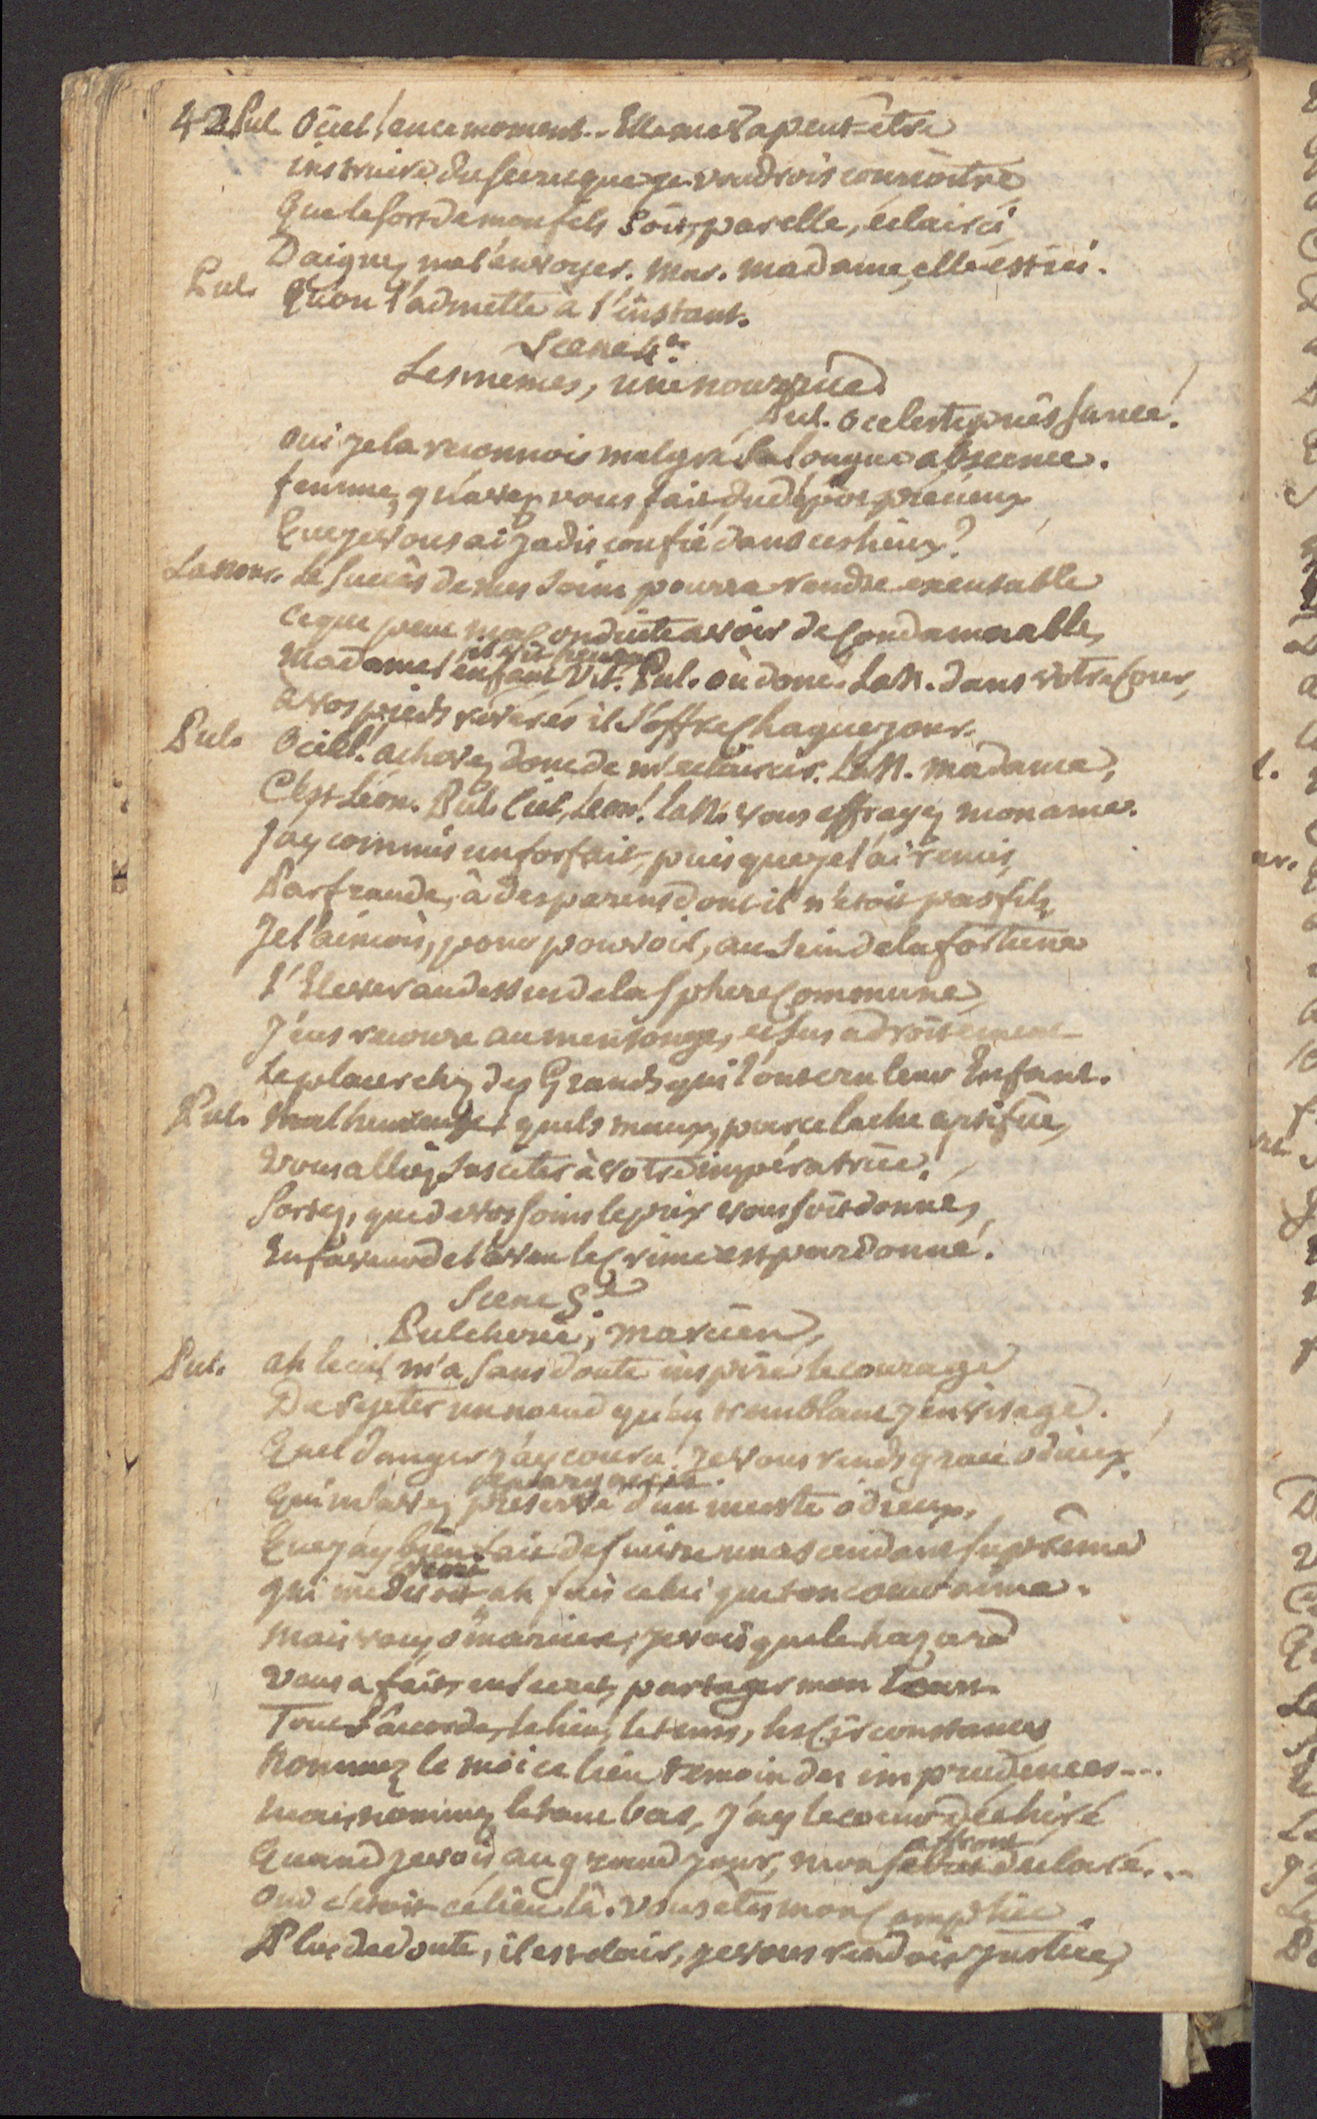 42 Pul. O ciel! en ce moment.. Elle me va peut-être
instruire du secret que je voudrois connoitre,
Que le sort de mon fils soit, par elle, éclairci,
Daignez me l'envoyer. Mar. madame, elle est ici.
Pul. Qu'on l'admette a l'instant.
Scene 4e.
Les memes, une nourrice.
Pul. o celeste puissance!
oui je la reconnois malgré sa longue absence.
femme, qu'avez vous fait du dépot précieux
Que je vous ai jadis confié dans ces lieux?
La nour. Le succès de mes soins pourra rendre excusable
ce que peut ma conduite avoir de condamnable,
madame l'enfant vit. Pul. où donc. La N. dans votre Cour,
a vos pieds révérés il s'offre chaque jour.
Pul. O ciel! achevez donc de m'eclaircir. La N. madame,
C'est Léon. Pul. Ciel, Léon! la N. vous effrayez mon ame.
J'ay commis un forfait, puisque je l'ai remis,
Par fraude, à des parens dont il n'etoit pas fils,
Je l'aimois, pour pouvoir, au sein de la fortune
l'Elever au dessus de la sphere Commune,
J'eus recours au mensonge, et sus adroitement
Le placer chez des Grands qui l'ont cru leur Enfant.
Pul. Malheureuse! quels maux, par ce lache artifice,
Vous alliez susciter à votre impératrice!
Sortez, que de vos soins le prix vous soit donné,
En faveur de l'aveu le Crime est pardonné.
Scene 5e.
Pulcherie, marcien,
Pul. ah le ciel m'a sans doute inspiré le courage
De rejeter un noeud qu'en tremblant j'envisage.
Quel danger j'ay couru! Je vous rends grace o dieux!
Qui m'avez préservé d'un inceste odieux,
Que j'ay bien fait de suivre un ascendant suprême
qui me disoit ah fuis celui que ton coeur aime.
Mais vous, o marcien, je vois que le hazard
Vous a fait, en secret, partager mon
Tout s'accorde, le lieu, le tems, les Circonstances
Nommez le moi ce lieu temoin des imprudences...
Mais, nommez le tout bas, J'ay le coeur déchiré
affront
Quand je vois au grand jour, mon declaré...
Oui c'etoit ce lieu là. vous êtes mon Complice
Plus de doute, il est clair, je vous rendois justice,